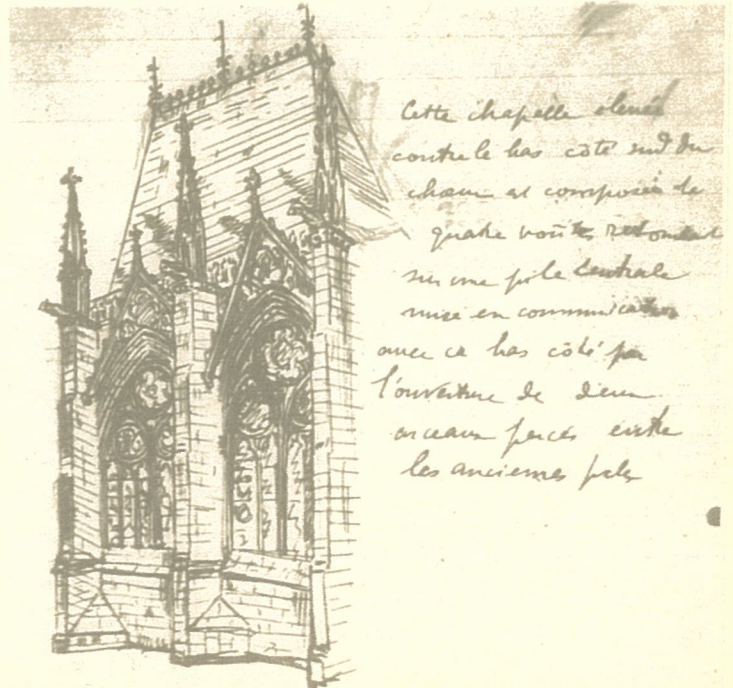 Cette chapelle elevée
contre le bas côté sud du
chœur est composée de
quatre voûtes retombant
sur une pile centrale
mise en communication
avec ce bas côté par
l'ouverture de deux
arceaux percés entre
les anciennes piles